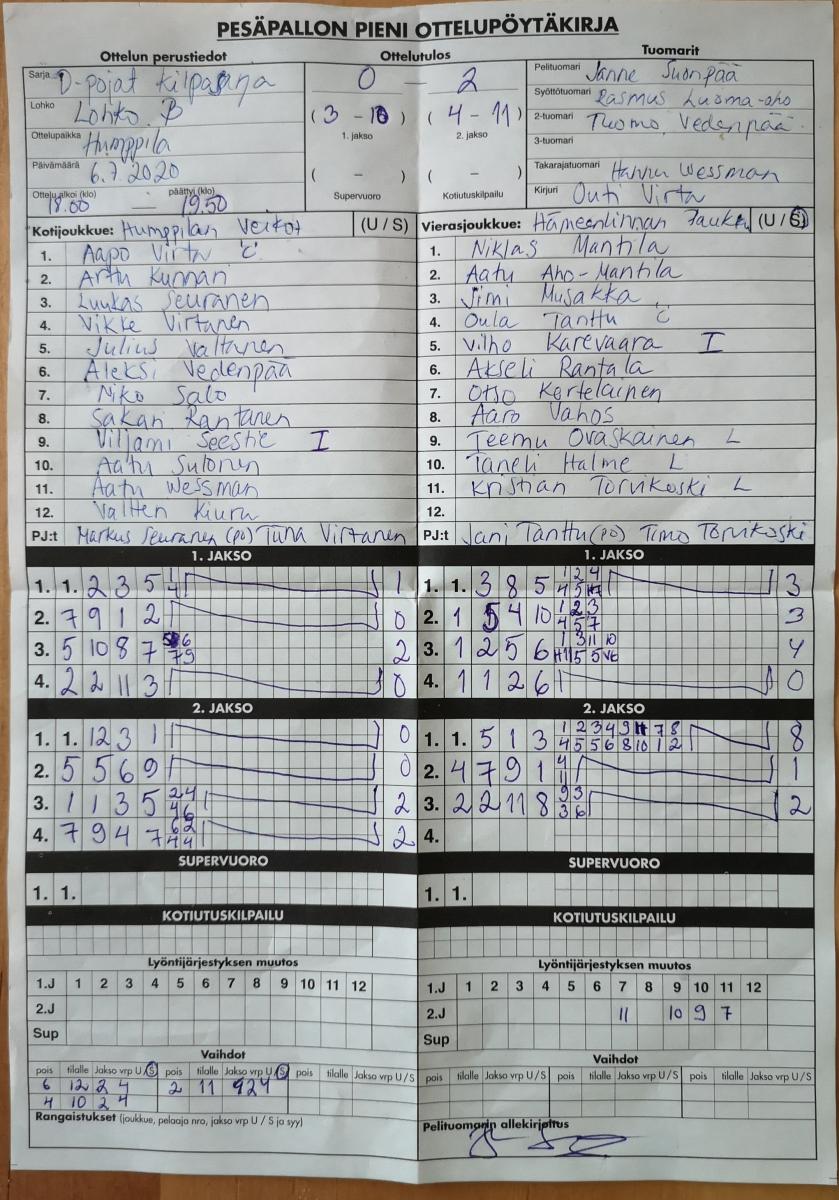 PESÄPALLON PIENI OTTELUPÖYTÄKIRJA
Ottelun perustiedot
Sarja D-pojat kilpasarja
Lohko Lohko B
Ottelupaikka Humppila
Päivämäärä 6.7.2020
Ottelu alkoi (klo) päättyi (klo)
18.00 — 19.50
Ottelutulos
0 – 2
(3 - 10) (4 - 11)
1. jakso 2. jakso
( - ) ( - )
Supervuoro Kotiutuskilpailu
Tuomarit
Pelituomari Janne Suonpää
Syöttötuomari Rasmus Luoma-aho
2-tuomari Tuomo Vedenpää
3-tuomari
Takarajatuomari Hannu Wessman
Kirjuri Outi Virta
Kotijoukkue: Humppilan Veikot (U / S)
1. Aapo Virta C
2. Arttu Kunnari
3. Luukas Seuranen
4. Vikke Virtanen
5. Julius Valtanen
6. Aleksi Vedenpää
7. Niko Salo
8. Sakari Rantanen
9. Viljami I
10. Aatu Sulonen
11. Aatu Wessman
12. Valtteri Kiuru
PJ:t Markus Seuranen (po) Virtanen
Vierasjoukkue: Hämeenlinnan (U / S)
1. Niklas Mantila
2. Aatu Aho-Mantila
3. Jimi Musakka
4. Oula Tanttu C
5. Vilho Karevaara I
6. Akseli Rantala
7. Otso Kortelainen
8. Aaro Vahos
9. Teemu Ovaskainen L
10. Taneli Halme L
11. Kristian Torvikoski L
12.
PJ:t Jani Tanttu (po) Timo Torvikoski
1. JAKSO
1. 1. 2 3 5 1 4 1
2. 7 9 1 2 0
3. 5 10 8 7 6 7 9 2
4. 2 2 11 3 0
2. JAKSO
1. 1. 12 3 1 0
2. 5 5 6 9 0
3. 1 1 3 5 2 4 4 6 2
4. 7 9 4 7 6 2 4 4 2
SUPERVUORO
1. 1.
KOTIUTUSKILPAILU
Lyöntijärjestyksen muutos
1.J 1 2 3 4 5 6 7 8 9 10 11 12
2.J
Sup
Vaihdot
pois tilalle Jakso vrp U / S pois tilalle Jakso vrp U / S pois tilalle Jakso vrp U / S
6 12 2 4 2 11 2 4
4 10 2 4
Rangaistukset (joukkue, pelaaja nro, jakso vrp U / S ja syy)
1. JAKSO
1. 1. 3 8 5 1 2 4 4 5 3
2. 1 5 4 10 1 2 3 4 5 7 3
3. 1 2 5 6 1 3 11 10 5 5 4
4. 1 1 2 6 0
2. JAKSO
1. 1. 5 1 3 1 2 3 4 9 7 8 4 5 5 6 8 10 1 2 8
2. 4 7 9 1 4 11 1
3. 2 2 11 8 9 3 3 6 2
4.
SUPERVUORO
1. 1.
KOTIUTUSKILPAILU
Lyöntijärjestyksen muutos
1.J 1 2 3 4 5 6 7 8 9 10 11 12
2.J 11 10 9 7
Sup
Vaihdot
pois tilalle Jakso vrp U / S pois tilalle Jakso vrp U / S pois tilalle Jakso vrp U / S
Pelituomarin allekirjoitus